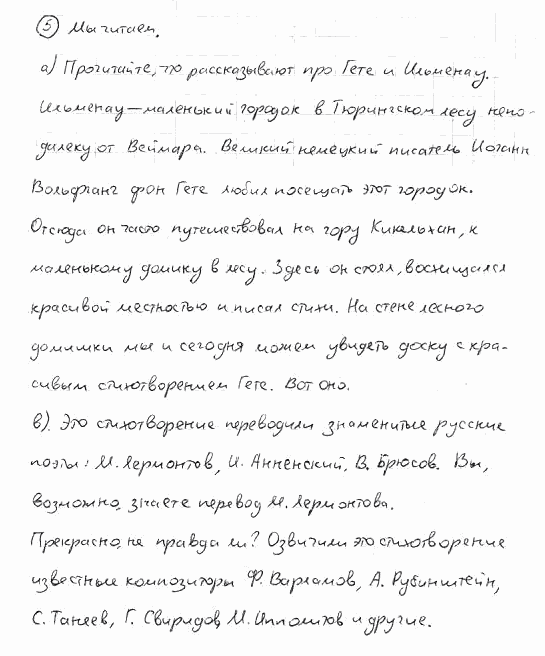 ⑤ Мы читаем.
а) Прочитайте, что рассказывают про Гете и Ильменау.
Ильменау — маленький городок в Тюрингском лесу непо-
далеку от Веймара. Великий немецкий писатель Иоганн
Вольфганг фон Гете любил посещать этот городок.
Отсюда он часто путешествовал на гору Кикельхан, к
маленькому домику в лесу. Здесь он стоял, восхищался
красивой местностью и писал стихи. На стене лесного
домишки мы и сегодня можем увидеть доску с кра-
сивым стихотворением Гете. Вот оно.
в). Это стихотворение переводили знаменитые русские
поэты: М. Лермонтов, И. Анненский, В. Брюсов. Вы,
возможно, знаете перевод М. Лермонтова.
Прекрасно, не правда ли? Озвучили это стихотворение
известные композиторы Ф. Варламов, А. Рубинштейн,
С. Танеев, Г. Свиридов, М. Ипполитов и другие.